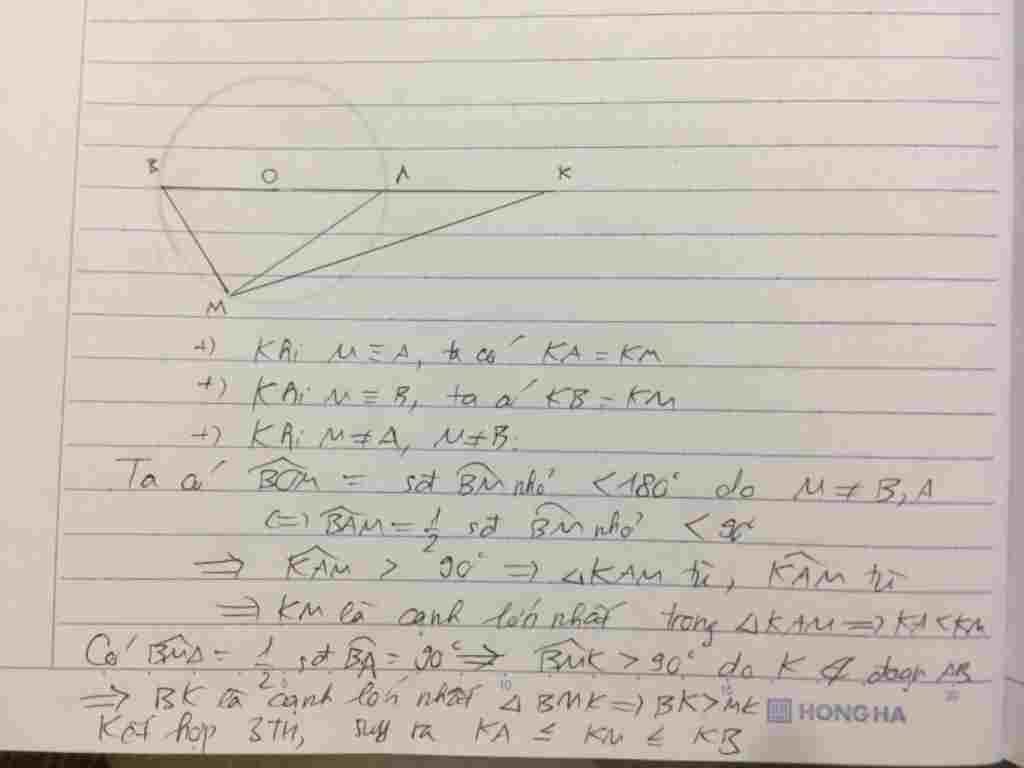 B O A K
M
+) Khi M ≡ A, ta có KA = KM
+) Khi M ≡ B, ta có KB = KM
+) Khi M ≠ A, M ≠ B.
Ta có $\widehat{BOM}$ = sđ $\overset{\frown}{BM}$ nhỏ < 180° do M ≠ B, A
(=) $\widehat{BAM}$ = $\frac{1}{2}$ sđ $\overset{\frown}{BM}$ nhỏ < 90°
⇒ $\widehat{KAM}$ > 90° ⇒ △KAM tù, $\widehat{KAM}$ tù
⇒ KM là cạnh lớn nhất trong △KAM ⇒ KA < KM
Có $\widehat{BMA}$ = $\frac{1}{2}$ sđ $\overset{\frown}{BA}$ = 90° ⇒ $\widehat{BMK}$ > 90° do K ∉ đoạn AB
⇒ BK là cạnh lớn nhất △BMK ⇒ BK > MK HONG HA
Kết hợp 3TH, suy ra KA ≤ KM ≤ KB